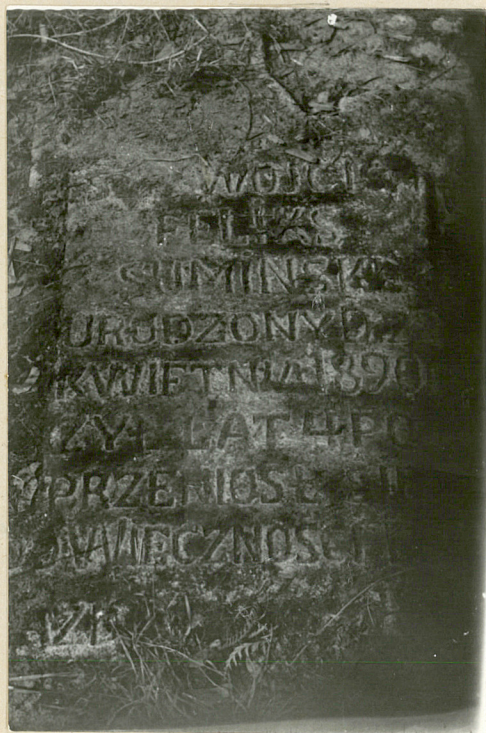 WOJCI
FELIKS
SUMIŃSKI
URODZONY D. 2
KWIETNIA 1890
ŻYŁ LAT 4 PO
PRZENIOSŁ SIĘ
WIECZNOŚCI